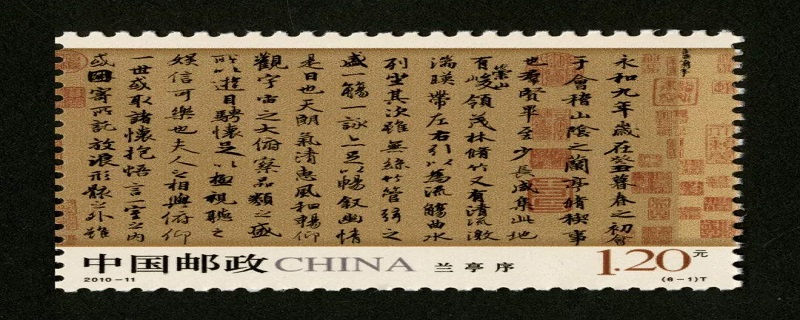 永和九年歲在癸丑暮春之初會
于會稽山陰之蘭亭脩禊事
也羣賢畢至少長咸集此地
有崇山峻領茂林脩竹又有清流激
湍暎帶左右引以為流觴曲水
列坐其次雖無絲竹管弦之
盛一觴一詠亦足以暢敘幽情
是日也天朗氣清惠風和暢仰
觀宇宙之大俯察品類之盛
所以遊目騁懷足以極視聽之
娛信可樂也夫人之相與俯仰
一世或取諸懷抱悟言一室之內
或因寄所託放浪形骸之外雖
中国邮政 CHINA 兰亭序 1.20元
2010-11 (6-1)T